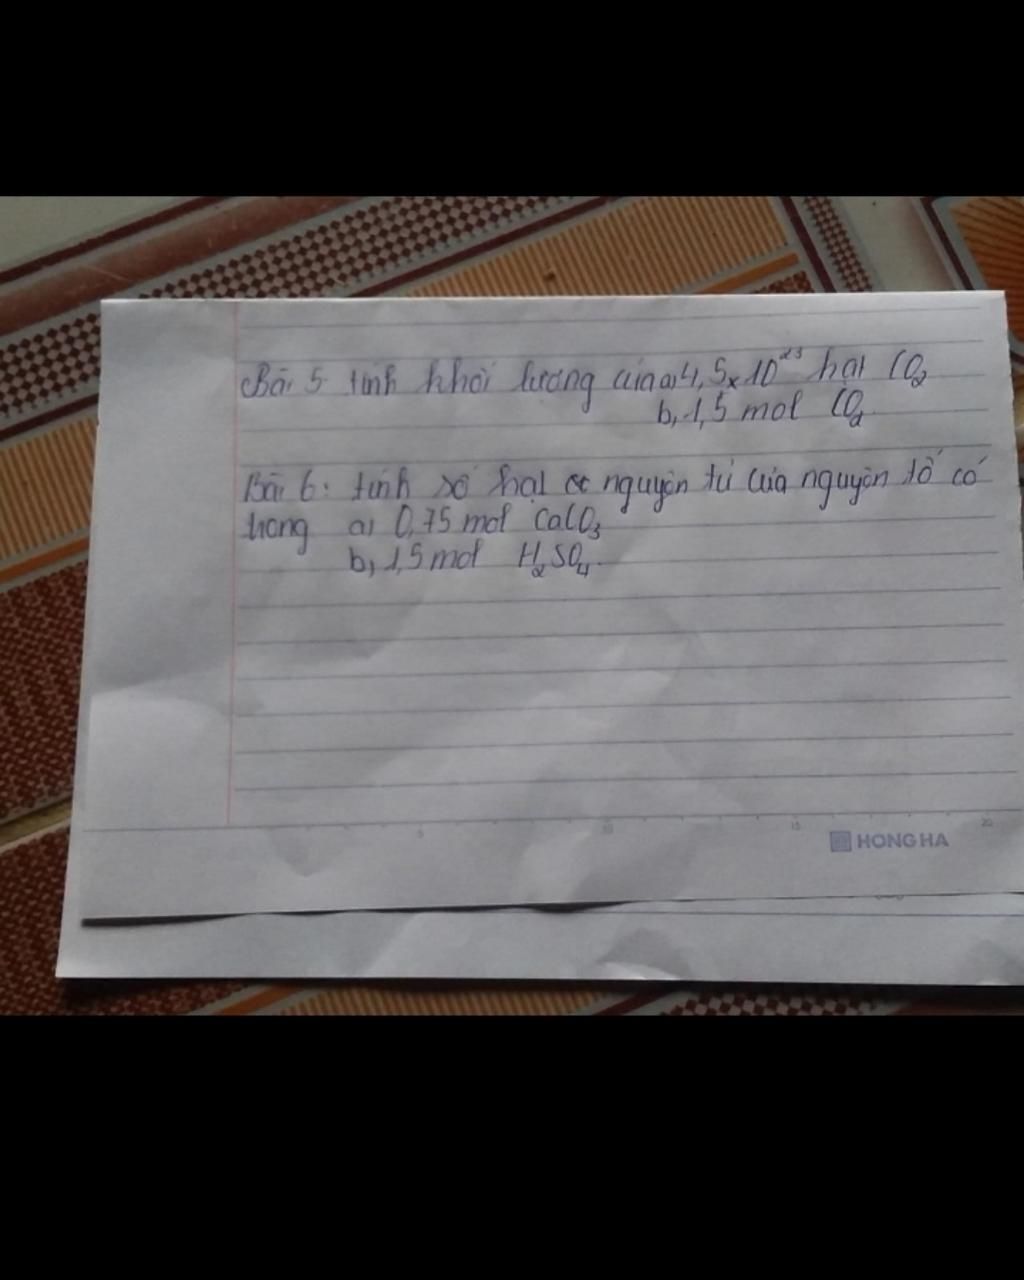 Bài 5 tính khối lượng của a, 4,5x10²³ hạt CO₂
b, 1,5 mol CO₂
Bài 6: tính số hạt nguyên tử của nguyên tố có
trong a, 0,75 mol CaCO₃
b, 1,5 mol H₂SO₄.
5 10 15 20
HONG HA